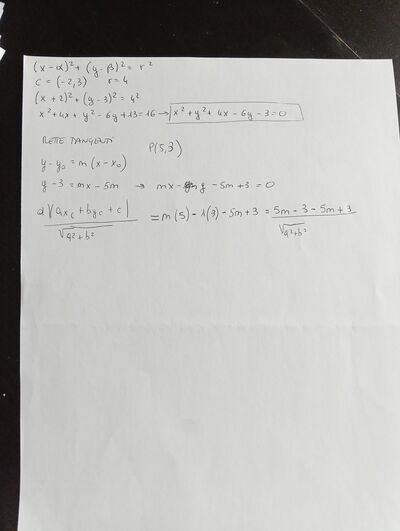 (x-α)² + (y-β)² = r²
C = (-2,3) r=4
(x+2)² + (y-3)² = 4²
x² + 4x + y² - 6y + 13 = 16 → x² + y² + 4x - 6y - 3 = 0
RETTE TANGENTI P(5,3)
y - y₀ = m(x - x₀)
y - 3 = mx - 5m → mx - y - 5m + 3 = 0
d |axc + byc + c| / √a²+b² = m(5) - 1(3) - 5m + 3 = 5m - 3 - 5m + 3 / √a²+b²